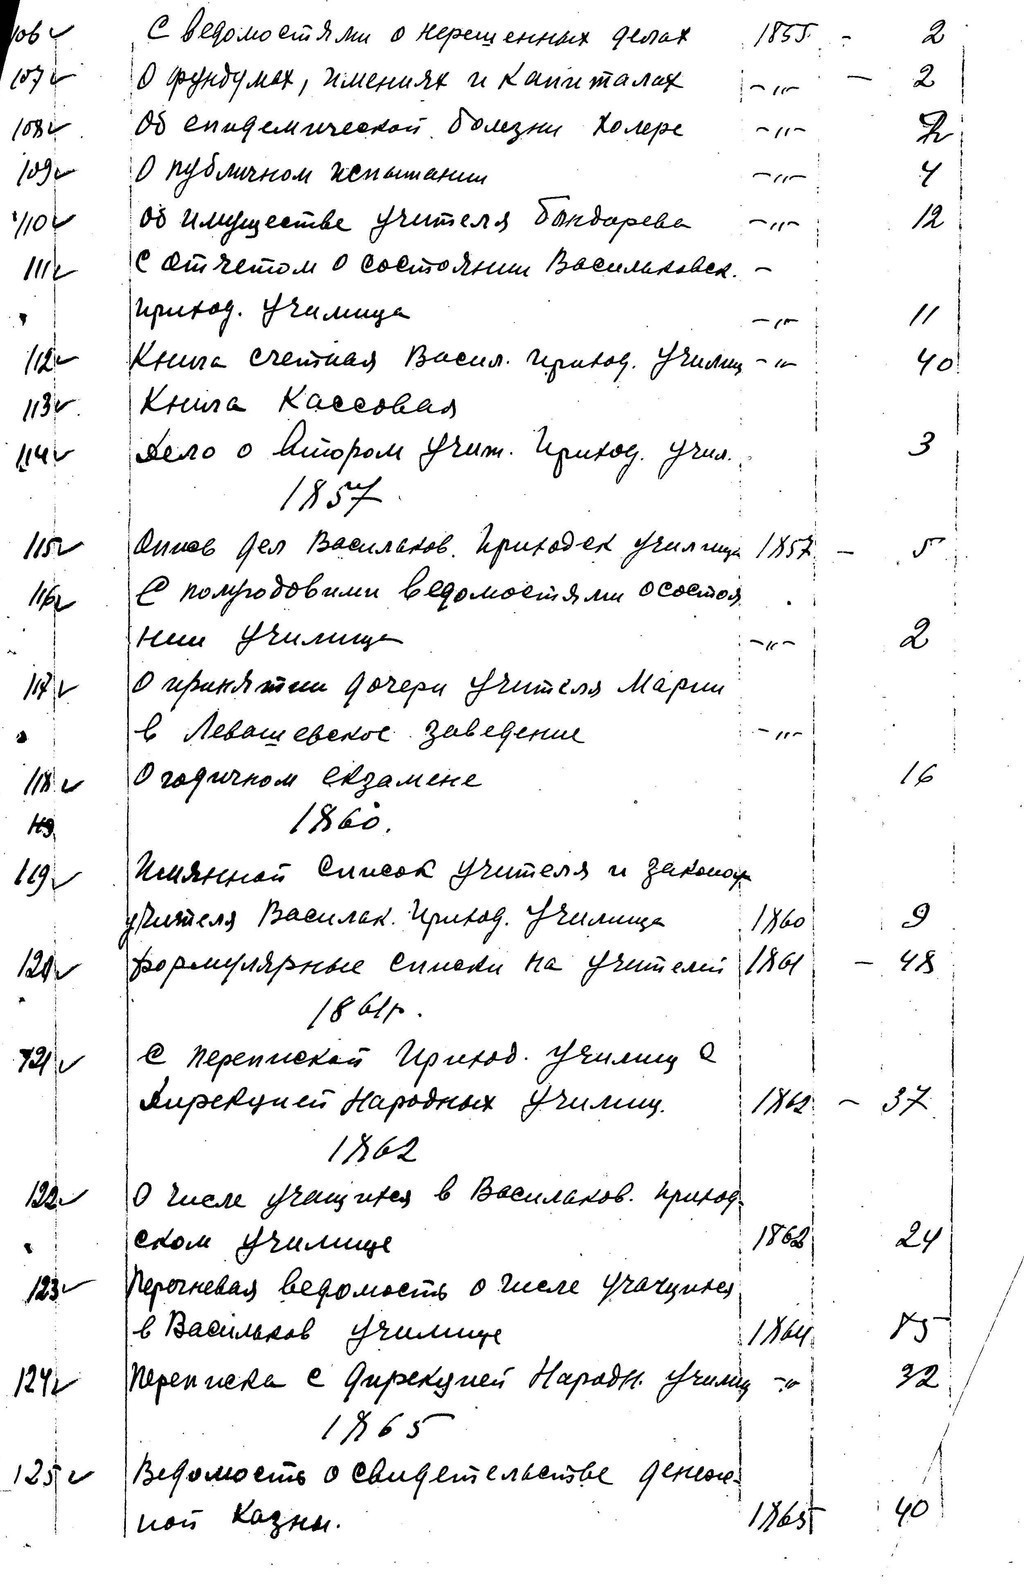 106 С ведомостями о нерешенных делах 1855 - 2
107 О фундумах, имениях и капиталах -"- - 2
108 Об епидемической болезни холере -"- 2
109 О публичном испытании -"- 4
110 Об имуществе учителя Бондарева -"- 12
111 С отчетом о состоянии Васильковск. -
приход. училища -"- 11
112 Книга счетная Васил. приход. училищ -"- 40
113 Книга Кассовая
114 Дело о втором учит. Приход. учил. 3
1857
115 Опись дел Васильков. Приходск училища 1857 - 5
116 С полугодовыми ведомостями о состоя
нии училища -"- 2
117 О принятии дочери учителя Марии
в Левашевское заведение -"-
118 О годичном екзамене 16
119 1860.
119 Имянной список учителя и законоу
учителя Васильк. Приход. Училища 1860 9
120 Формулярные списки на учителей 1861 - 48
1861г.
121 С перепиской Приход. училищ с
Дирекцией Народных Училищ. 1862 - 37
1862
122 О числе учащихся в Васильков. приход-
ском училище 1862 24
123 Перечневая ведомость о числе учащихся
в Васильков училище 1864 85
124 Переписка с Дирекцией Народн. Училищ -"- 32
1865
125 Ведомость о свидетельстве денеж-
ной казны. 1865 - 40